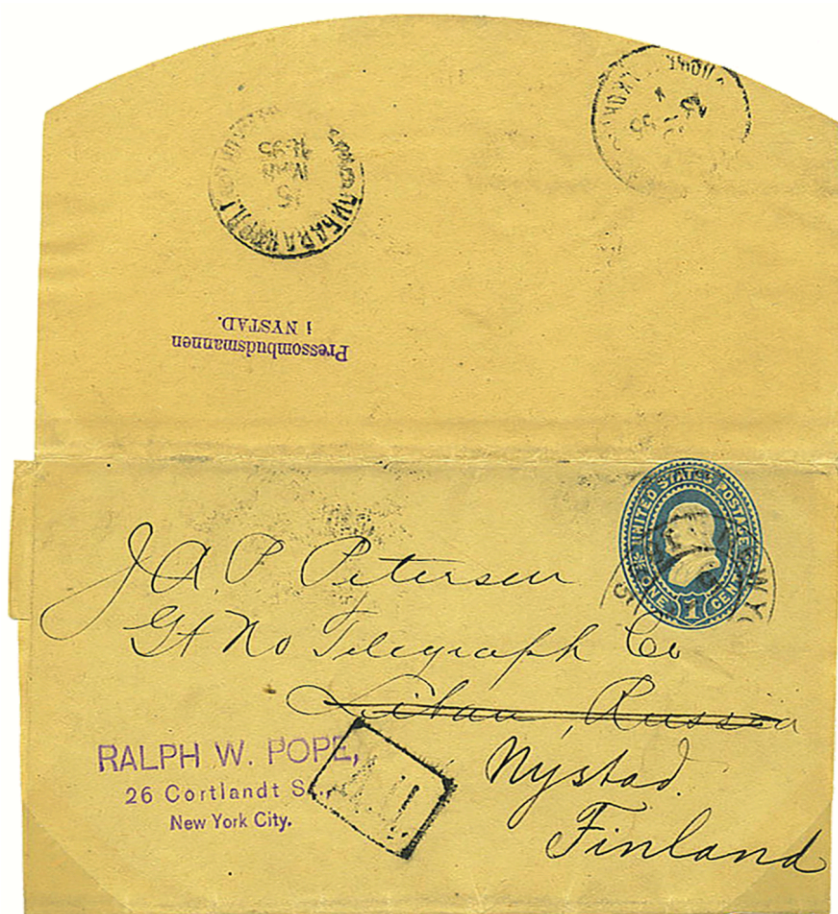 ЛИБАВА
15
95
Pressombudsmannen
i NYSTAD.
UNITED STATES POSTAGE
ONE 1 CENT
J A P Petersen
Gt No Telegraph Co
Libau, Russia
Nystad.
Finland
RALPH W. POPE,
26 Cortlandt
New York City.